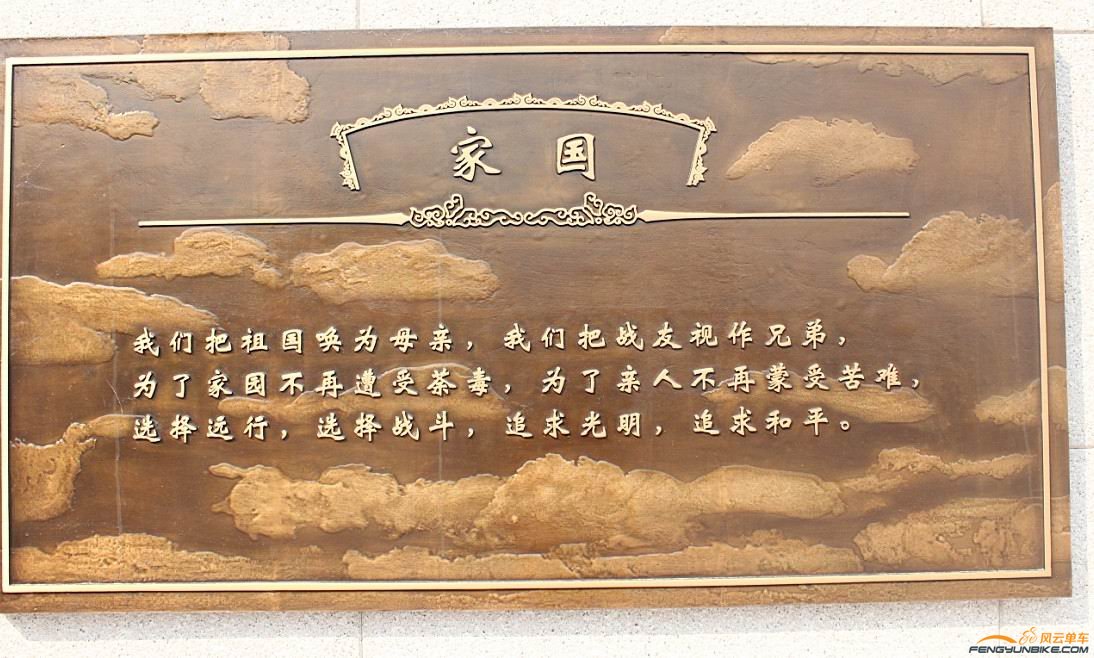 家国
我们把祖国唤为母亲，我们把战友视作兄弟，
为了家园不再遭受荼毒，为了亲人不再蒙受苦难，
选择远行，选择战斗，追求光明，追求和平。
风云单车
FENGYUNBIKE.COM